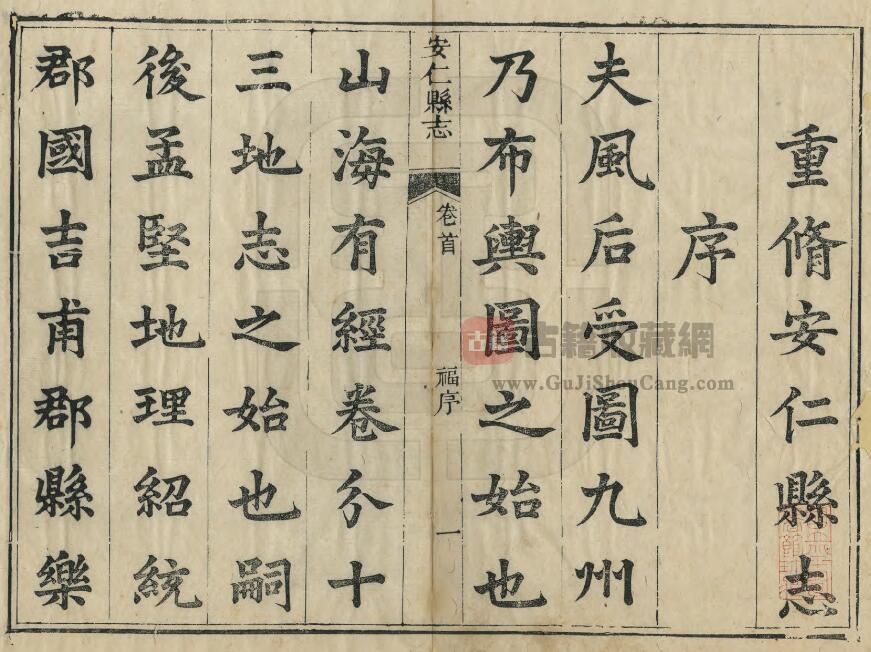 重脩安仁縣志
序
夫風后受圖九州
乃布輿圖之始也
安仁縣志
卷首
福序
一
山海有經卷分十
三地志之始也嗣
後孟堅地理紹統
郡國吉甫郡縣樂
古籍收藏網
www.GuJiShouCang.com